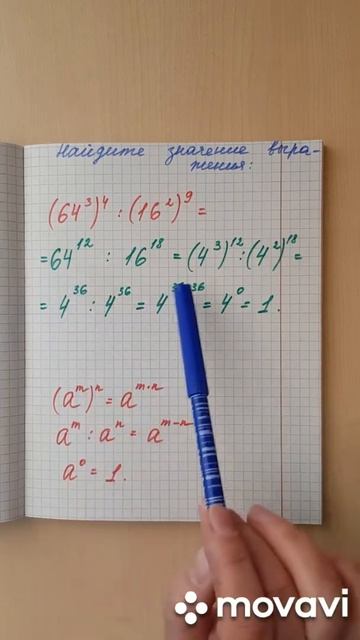 Найдите значение выра-
жения:
(64³)⁴ : (16²)⁹ =
= 64¹² : 16¹⁸ = (4³)¹² : (4²)¹⁸ =
= 4³⁶ : 4³⁶ = 4³⁶⁻³⁶ = 4⁰ = 1.
(aᵐ)ⁿ = aᵐ·ⁿ
aᵐ : aⁿ = aᵐ⁻ⁿ
a⁰ = 1.
movavi